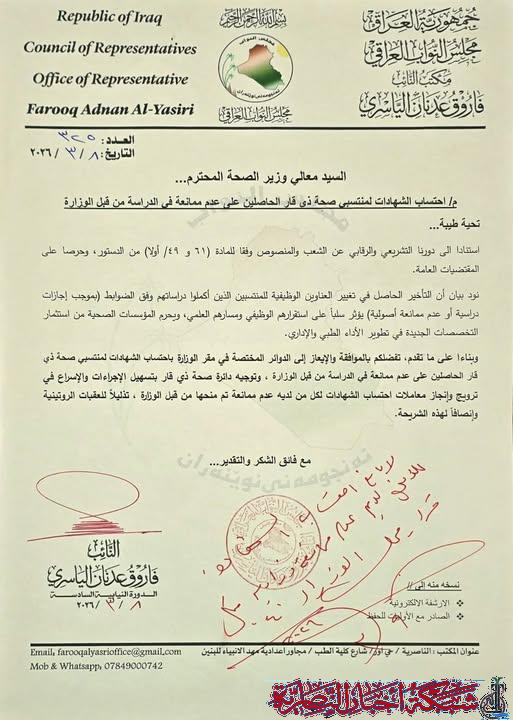 Republic of Iraq
Council of Representatives
Office of Representative
Farooq Adnan Al-Yasiri
بسم الله الرحمن الرحيم
مجلس النواب
ئه‌نجومه‌نى نوێنه‌ران
مجلس النواب العراقي
جمهورية العراق
مجلس النواب العراقي
مكتب النائب
فاروق عدنان الياسري
العدد: ٣٢٥
التاريخ: ٨ / ٣ / ٢٠٢٦
السيد معالي وزير الصحة المحترم...
م/ احتساب الشهادات لمنتسبي صحة ذي قار الحاصلين على عدم ممانعة في الدراسة من قبل الوزارة
تحية طيبة...
استنادا الى دورنا التشريعي والرقابي عن الشعب والمنصوص وفقا للمادة (٦١ و ٤٩/ أولا) من الدستور، وحرصا على
المقتضيات العامة.
نود بيان أن التأخير الحاصل في تغيير العناوين الوظيفية للمنتسبين الذين أكملوا دراساتهم وفق الضوابط (بموجب إجازات
دراسية أو عدم ممانعة أصولية) يؤثر سلباً على استقرارهم الوظيفي ومسارهم العلمي، ويحرم المؤسسات الصحية من استثمار
التخصصات الجديدة في تطوير الأداء الطبي والإداري.
وبناءا على ما تقدم، تفضلكم بالموافقة والإيعاز إلى الدوائر المختصة في مقر الوزارة باحتساب الشهادات لمنتسبي صحة ذي
قار الحاصلين على عدم ممانعة في الدراسة من قبل الوزارة ، وتوجيه دائرة صحة ذي قار بتسهيل الإجراءات والإسراع في
ترويج وإنجاز معاملات احتساب الشهادات لكل من لديه عدم ممانعة تم منحها من قبل الوزارة ، تذليلاً للعقبات الروتينية
وإنصافاً لهذه الشريحة.
مع فائق الشكر والتقدير...
ئه‌نجومه‌نى نوێنه‌ران
النائب
فاروق عدنان الياسري
الدورة النيابية السادسة
٨ / ٣ / ٢٠٢٦
نسخه منه إلى //
الارشفة الالكترونية
الصادر مع الأوليات للحفظ
عنوان المكتب : الناصرية / حي اور/ شارع كلية الطب / مجاور اعدادية مهد الانبياء للبنين
Email, farooqalyasrioffice@gmail.com
Mob & Whatsapp, 07849000742
شبكة اخبار الناصرية